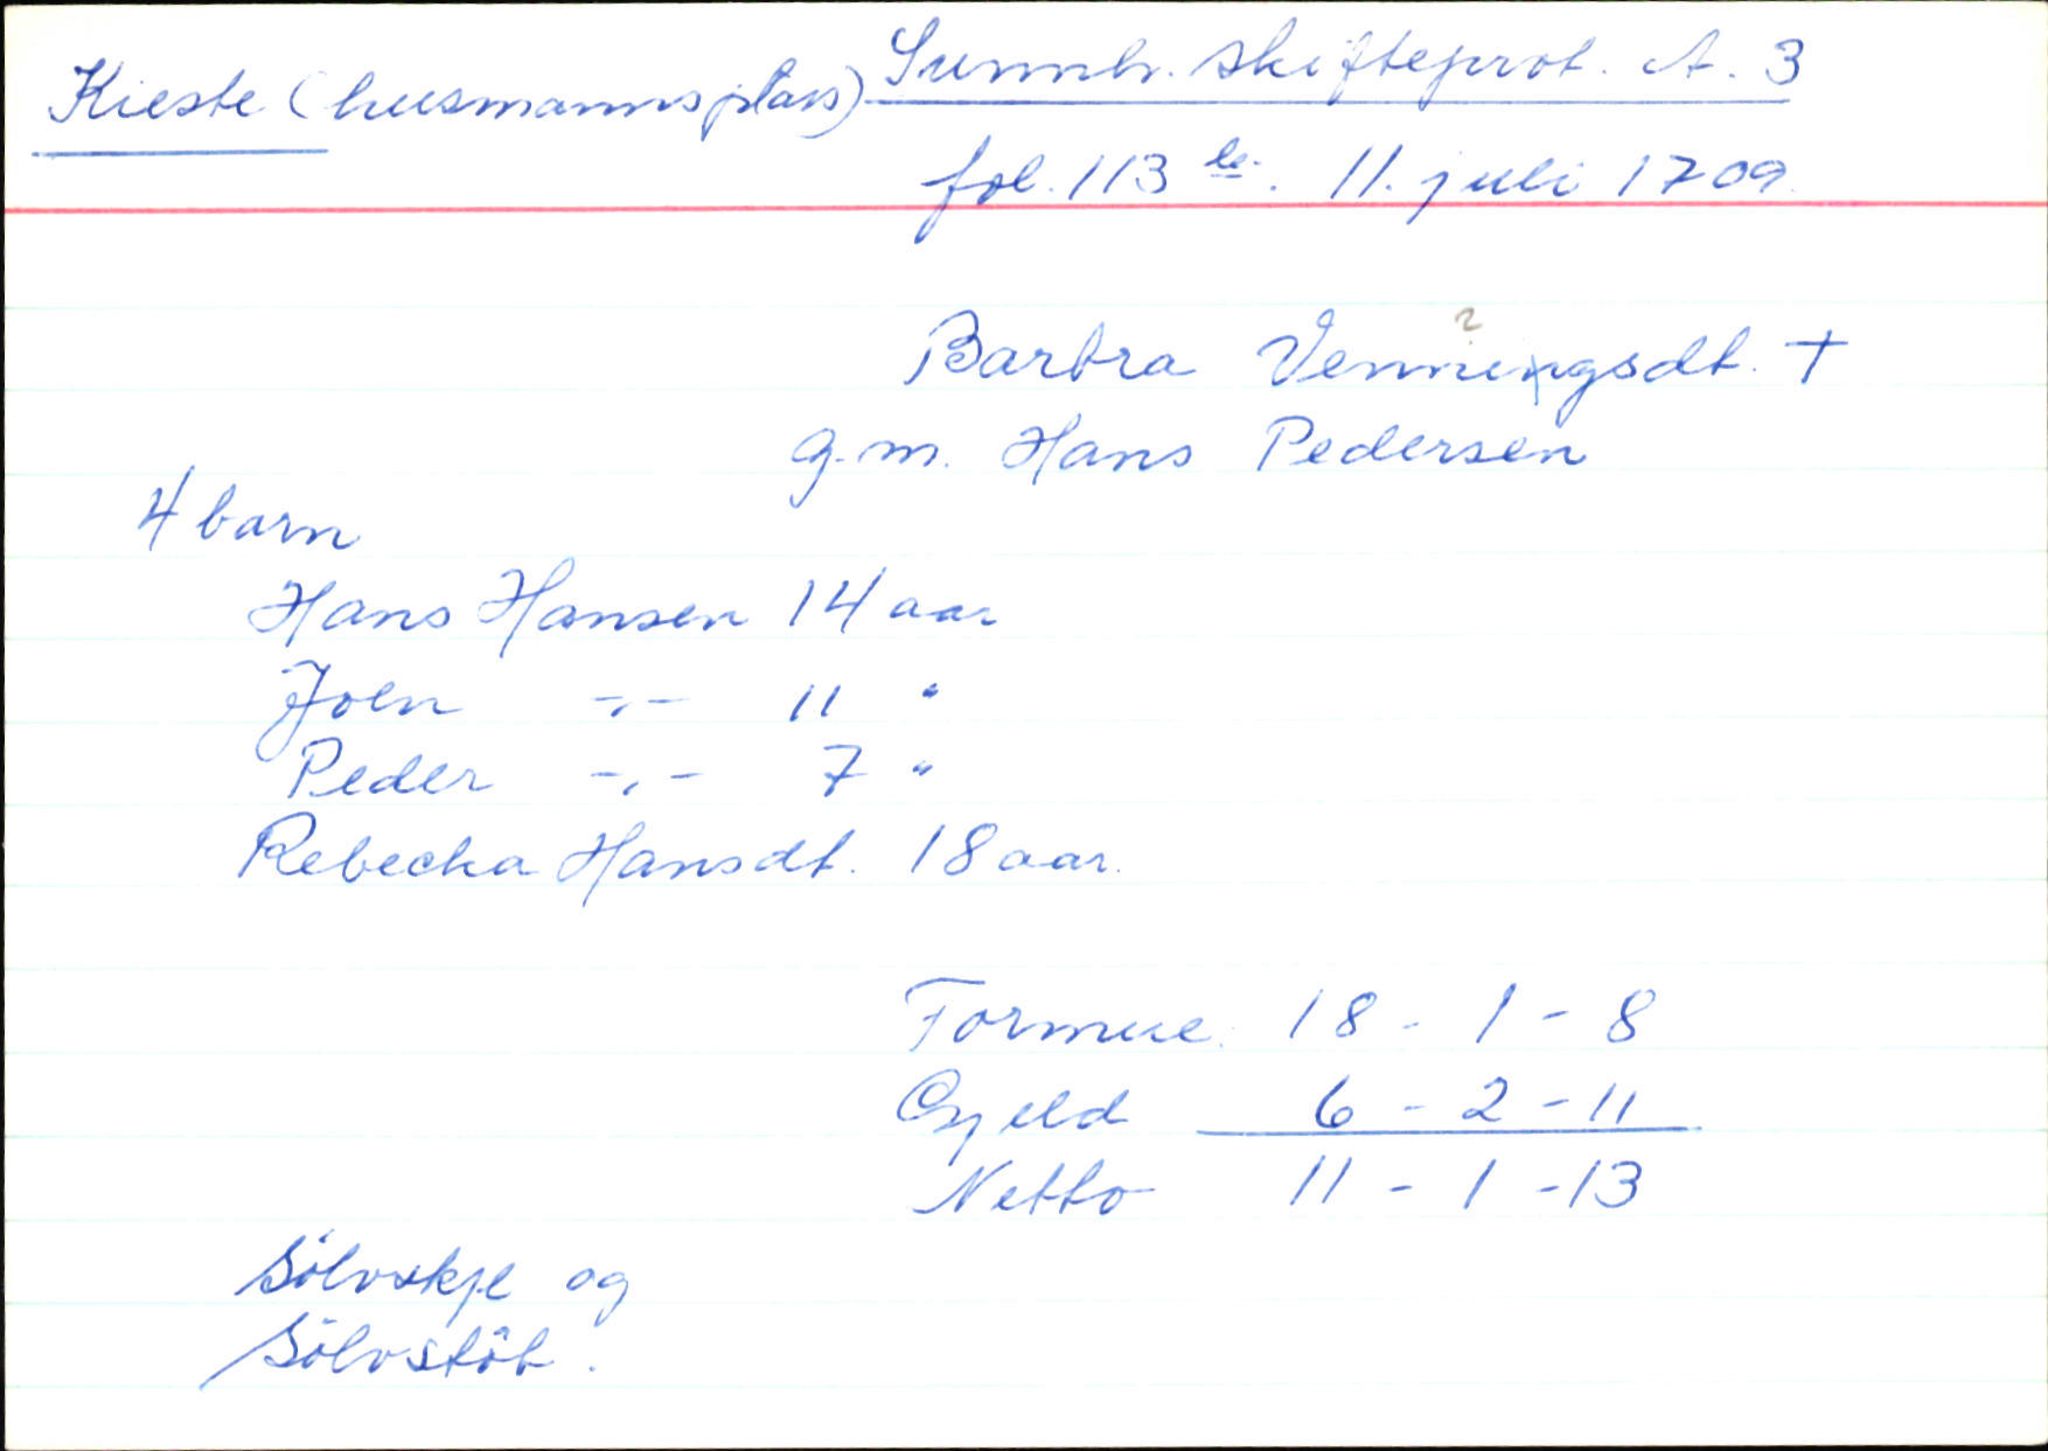 Kieste (husmannsplass) Sunnh. skifteprot. A. 3
fol. 113 b. 11. juli 1709.
?
Barbra Venningsdt. +
g.m. Hans Pedersen
4 barn
Hans Hansen 14 aar
Joen -,,- 11 "
Peder -,,- 7 "
Rebecka Hansdt. 18 aar.
Formue. 18 - 1 - 8
Gjeld 6 - 2 - 11
Netto 11 - 1 - 13
Sölvskje og
Sölvstöb.